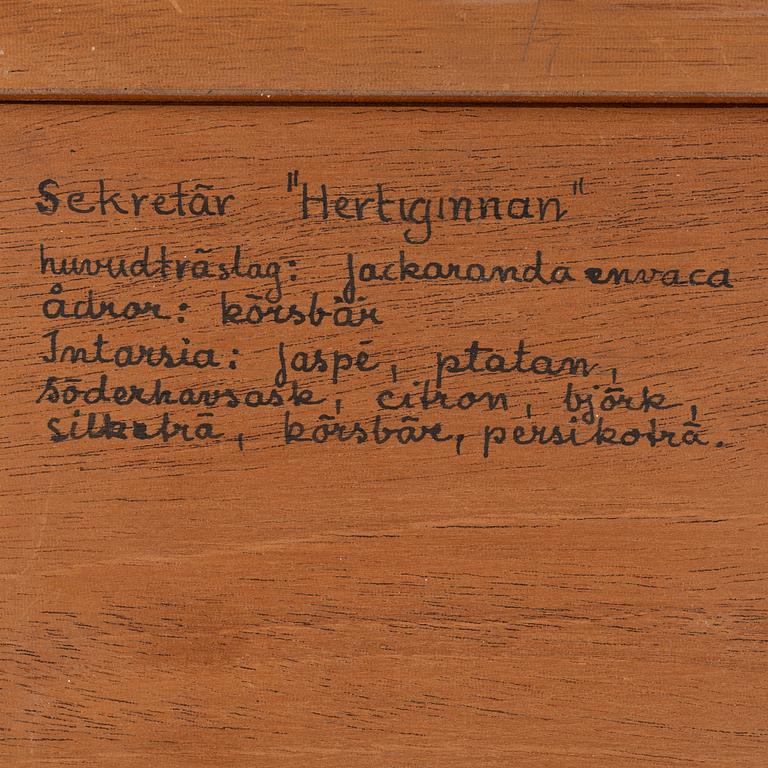 Sekretär "Hertiginnan"
huvudträslag: jackaranda envaca
ådror: körsbär
Intarsia: jaspé, ptatan,
söderhavsask, citron, björk,
silketrä, körsbär, persikoträ.